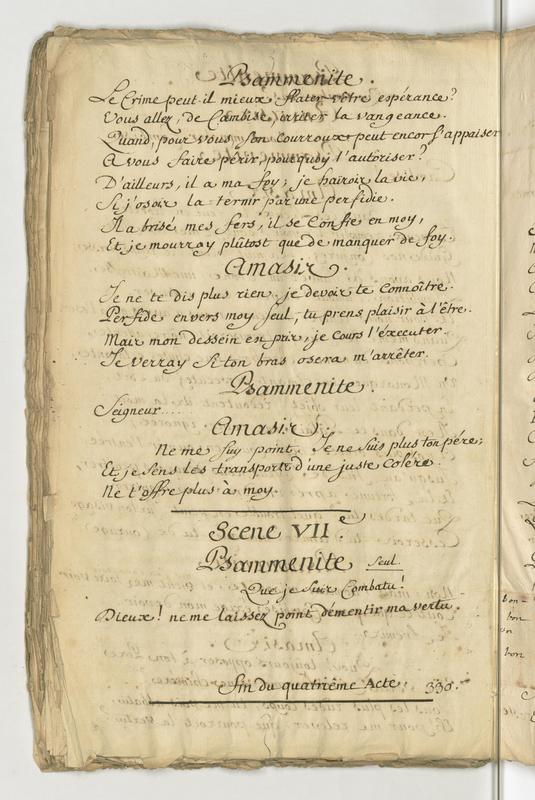 Psammenite.
Le Crime peut-il mieux flater vôtre espérance?
Vous allez, de Cambise, irriter la vangeance.
Quand, pour vous, son Courroux peut encor s'appaiser
A vous faire périr, pourquoy l'autoriser?
D'ailleurs, il a ma foy; je hairois la vie,
Si j'osois la ternir par une perfidie.
Il a brisé mes fers, il se Confie en moy,
Et je mourray plûtost que de manquer de foy.
Amasis.
Je ne te dis plus rien. je devois te Connoître.
Perfide envers moy seul, tu prens plaisir à l'être.
Mais mon dessein en pris, je Cours l'éxecuter.
Je verray si ton bras osera m'arrêter.
Psammenite.
Seigneur....
Amasis.
Ne me suy point. Je ne suis plus ton pére;
Et je sens les transports d'une juste Colére.
Ne t'offre plus à moy.
Scene VII.e
Psammenite seul.
Que je suis Combatu!
Dieux! ne me laissez point démentir ma vertu.
fin du quatriême Acte. 330.
bon-
bon
bon